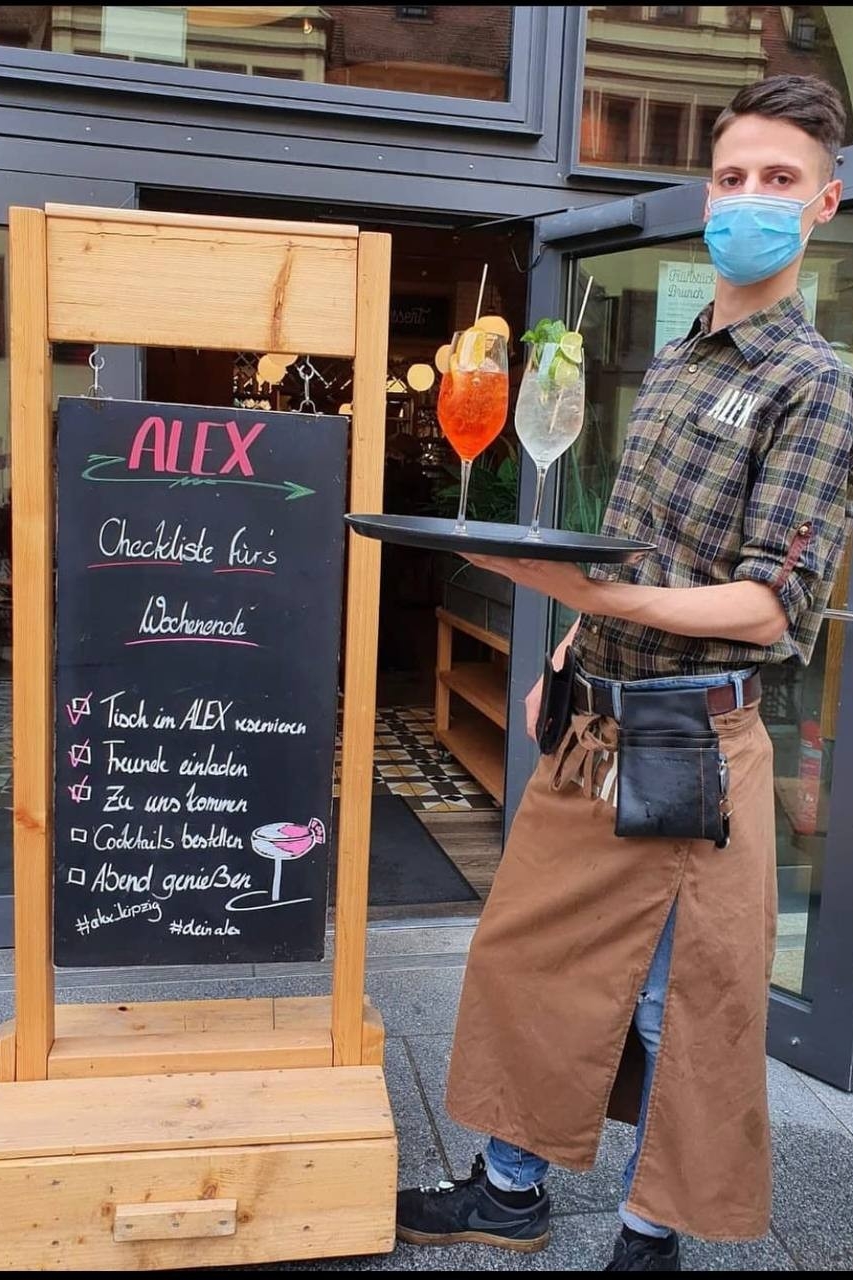 ALEX
Checkliste für's
Wochenende
Tisch im ALEX reservieren
Freunde einladen
Zu uns kommen
Cocktails bestellen
Abend genießen
#alex.leipzig
#deinalex
ALEX
Frühstück
Brunch